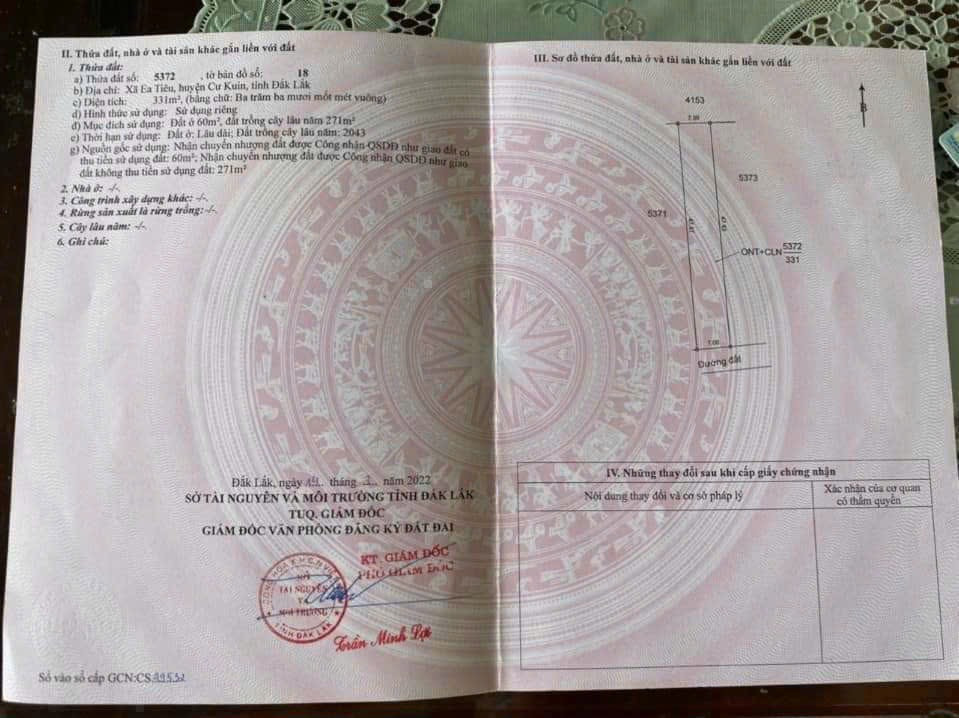 II. Thửa đất, nhà ở và tài sản khác gắn liền với đất
1. Thửa đất:
a) Thửa đất số: 5372 , tờ bản đồ số: 18
b) Địa chỉ: Xã Ea Tiêu, huyện Cư Kuin, tỉnh Đắk Lắk
c) Diện tích: 331m², (bằng chữ: Ba trăm ba mươi mốt mét vuông)
d) Hình thức sử dụng: Sử dụng riêng
đ) Mục đích sử dụng: Đất ở 60m², đất trồng cây lâu năm 271m²
e) Thời hạn sử dụng: Đất ở: Lâu dài; Đất trồng cây lâu năm: 2043
g) Nguồn gốc sử dụng: Nhận chuyển nhượng đất được Công nhận QSDĐ như giao đất có
thu tiền sử dụng đất: 60m²; Nhận chuyển nhượng đất được Công nhận QSDĐ như giao
đất không thu tiền sử dụng đất: 271m²
2. Nhà ở: -/-.
3. Công trình xây dựng khác: -/-.
4. Rừng sản xuất là rừng trồng: -/-.
5. Cây lâu năm: -/-.
6. Ghi chú:
Đắk Lắk, ngày tháng năm 2022
SỞ TÀI NGUYÊN VÀ MÔI TRƯỜNG TỈNH ĐẮK LẮK
TUQ. GIÁM ĐỐC
GIÁM ĐỐC VĂN PHÒNG ĐĂNG KÝ ĐẤT ĐAI
KT. GIÁM ĐỐC
PHÓ GIÁM ĐỐC
SỞ
TÀI NGUYÊN
VÀ
MÔI TRƯỜNG
TỈNH ĐẮK LẮK
Trần Minh Lợi
Số vào sổ cấp GCN:CS
III. Sơ đồ thửa đất, nhà ở và tài sản khác gắn liền với đất
B
4153
7.00
5373
5371
ONT+CLN 5372
331
7.00
Đường đất
IV. Những thay đổi sau khi cấp giấy chứng nhận
Nội dung thay đổi và cơ sở pháp lý
Xác nhận của cơ quan
có thẩm quyền